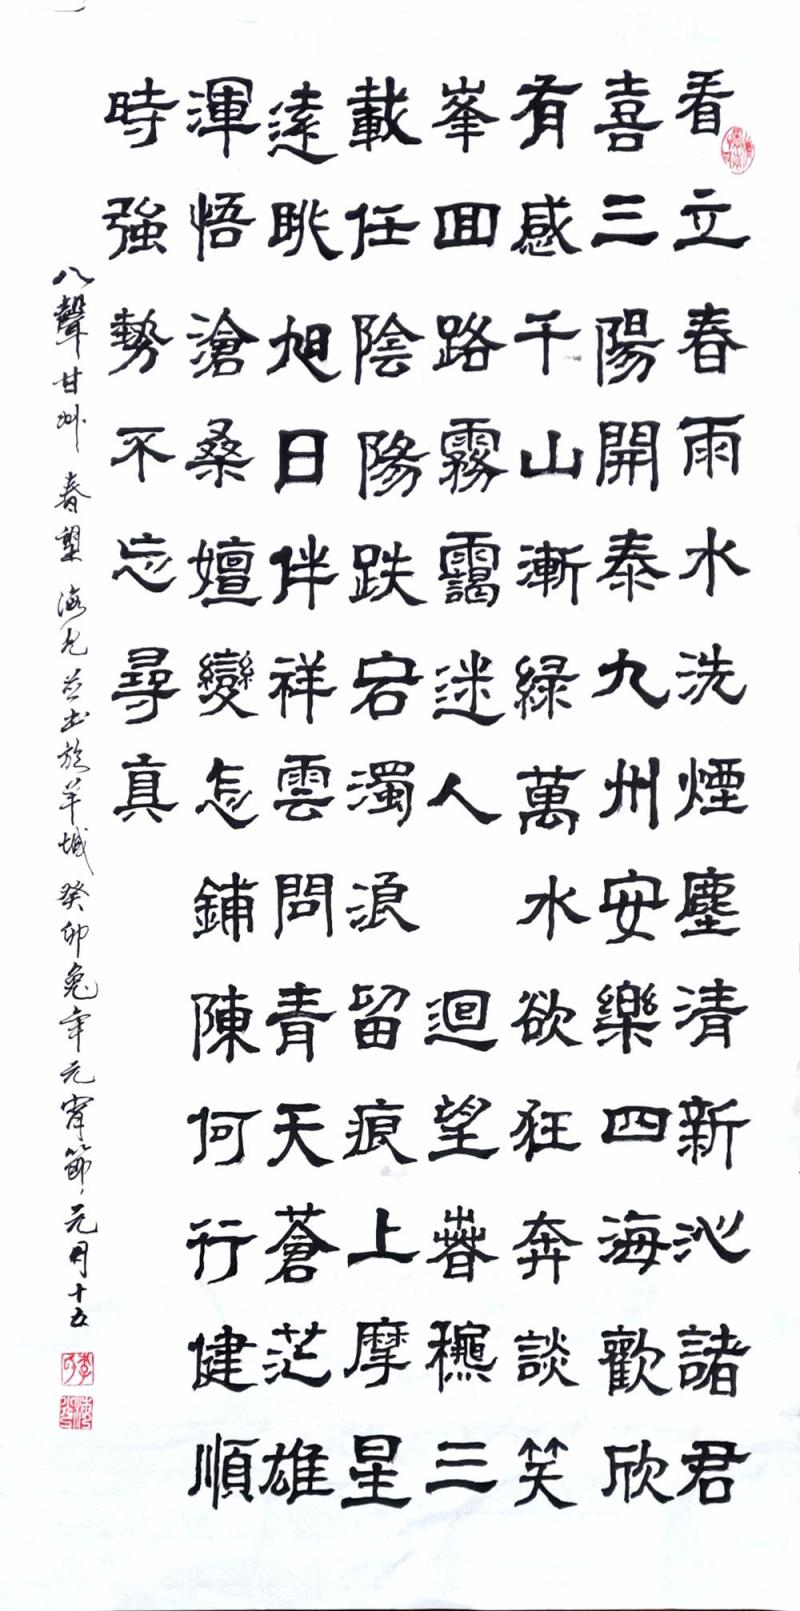 看立春雨水洗煙塵清新沁諸君
喜三陽開泰九州安樂四海歡欣
有感千山漸綠萬水欲狂奔談笑
峯回路霧靄迷人 迴望龝三
載任陰陽跌宕濁浪留痕上摩星
遠眺旭日伴祥雲問青天蒼茫雄
渾悟滄桑嬗變怎鋪陳何行健順
時強勢不忘尋真
八聲甘州 春望 海並書於羊城 癸卯兔年元宵節元月十五